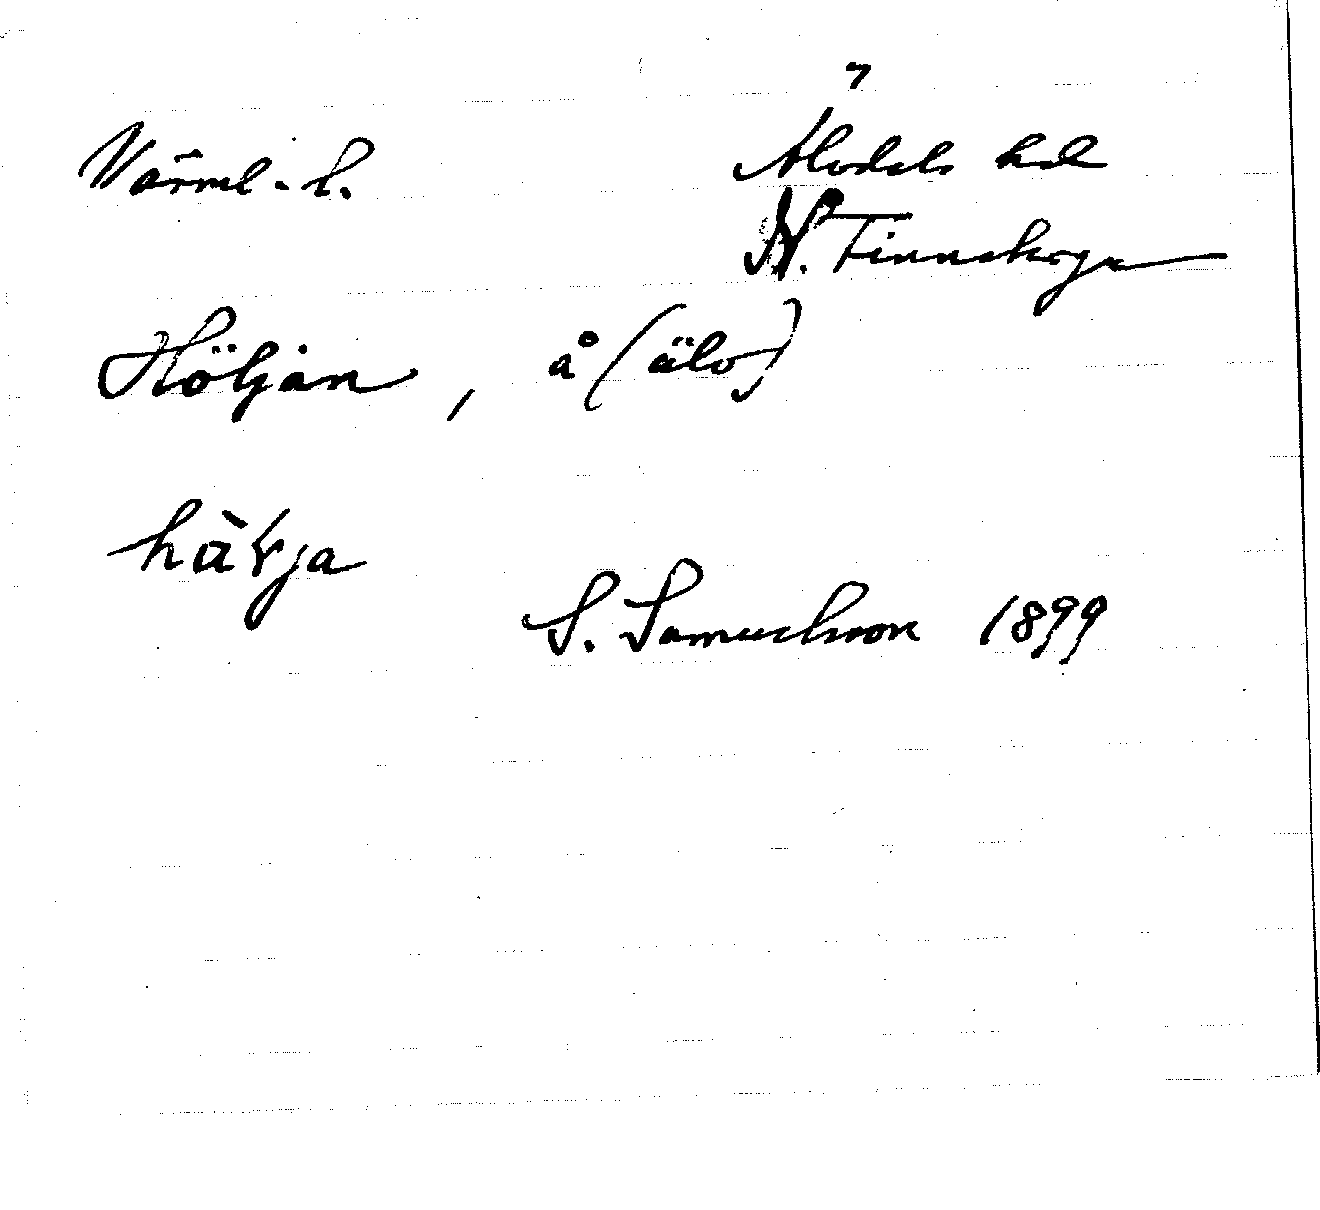 7
Värml. l. Älvdals hd
N. Finnskoga
Höljan, å (älv)
hàlja
S. Samuelsson 1899